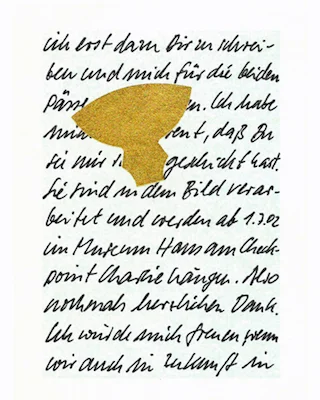 ich erst dazu Dir zu schrei-
ben und mich für die beiden
Pässe n. Ich habe
ent, daß Du
sie mir geschickt hast.
Sie sind in dem Bild verar-
beitet und werden ab 1.7.02
im Museum Haus am Check-
point Charlie hängen. Also
nochmals herzlichen Dank.
Ich würde mich freuen wenn
wir auch in Zukunft in